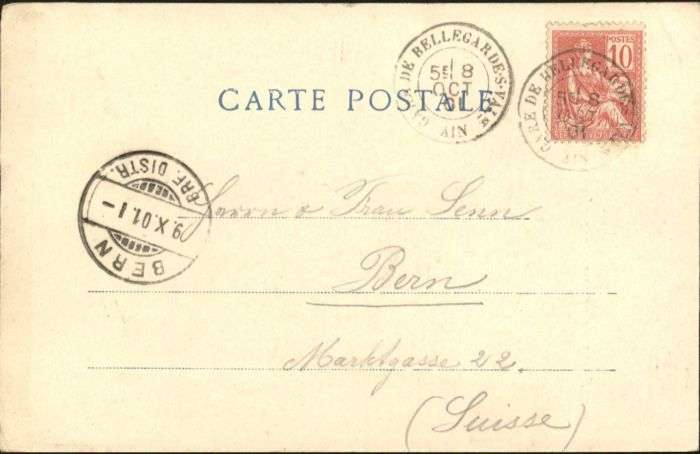 CARTE POSTALE
GARE DE BELLEGARDE-S-VALSE
5E 8
OCT
01
AIN
POSTES
10
GARE DE BELLEGARDE
5E 8
01
AIN
BERN
9.X.01.I-
BRF. DISTR.
Herrn & Frau Senn
Bern
Marktgasse 22.
(Suisse)